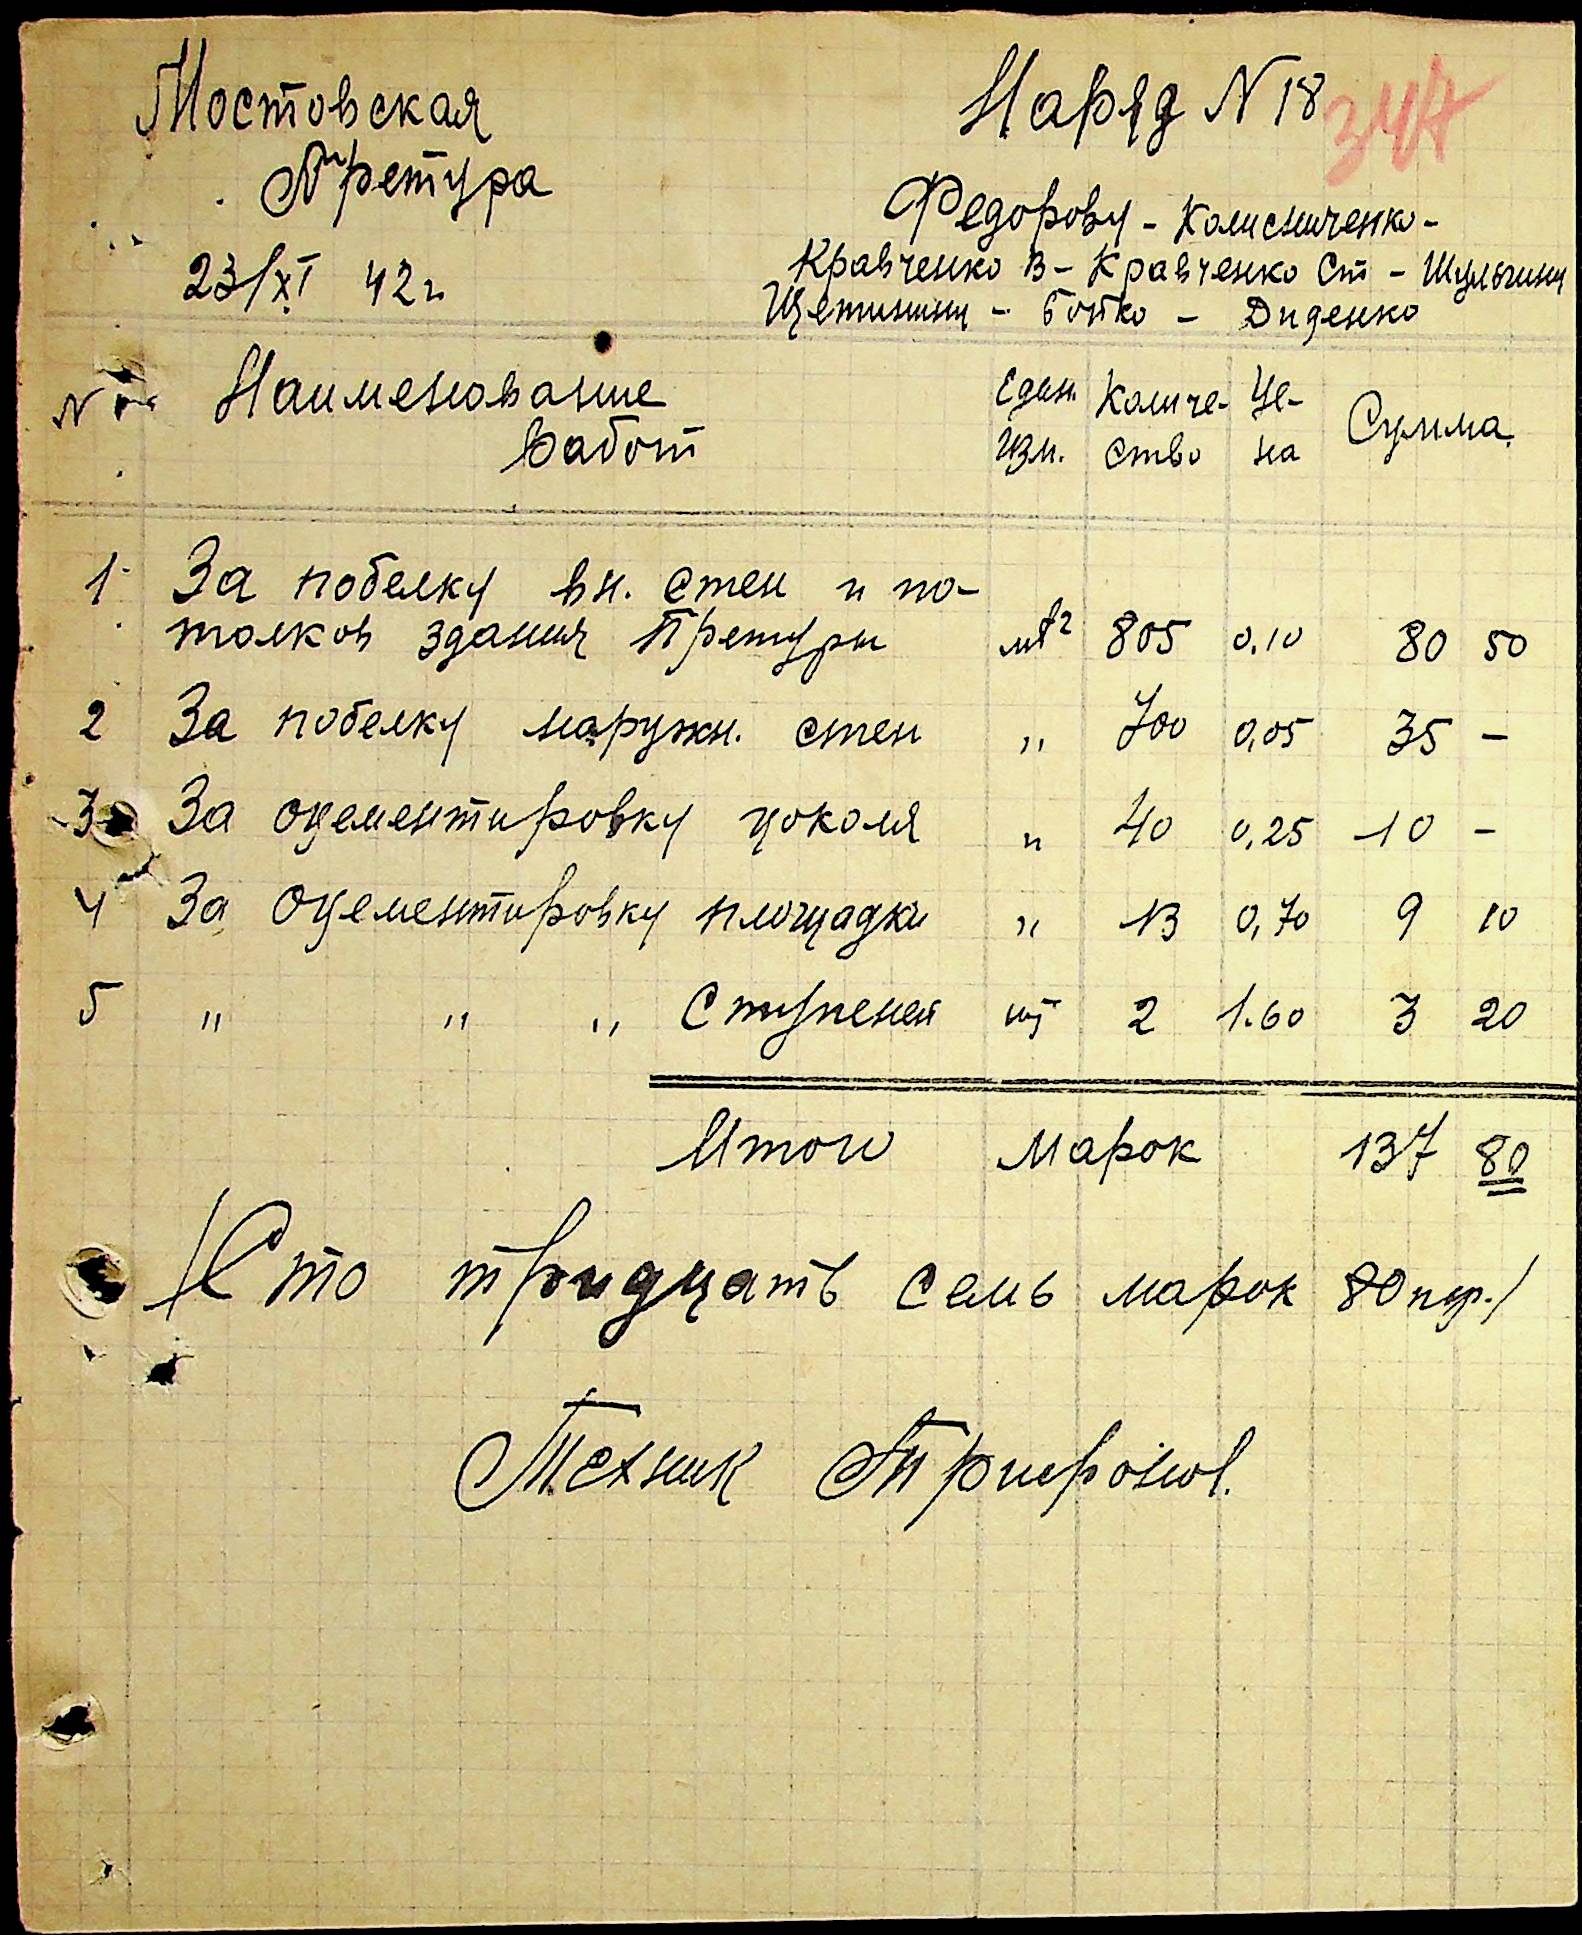 Мостовская
Претура
23/XI 42 г
Наряд N 18
347
Федорову - Колисниченко -
Кравченко В - Кравченко Ст - Шульгину
Щетинину - Бойко - Диденко
N Наименование работ Един. изм. Количе- ство Це- на Сумма
1 За побелку вн. стен и по-
толков здания Претуры мт² 805 0.10 80 50
2 За побелку наружн. стен " 700 0,05 35 -
3 За оцементировку цоколя " 40 0,25 10 -
4 За оцементировку площадки " 13 0,70 9 10
5 " " " ступеней шт 2 1.60 3 20
Итого марок 137 80
/Сто тридцать семь марок 80 пф./
Техник Трифонов.